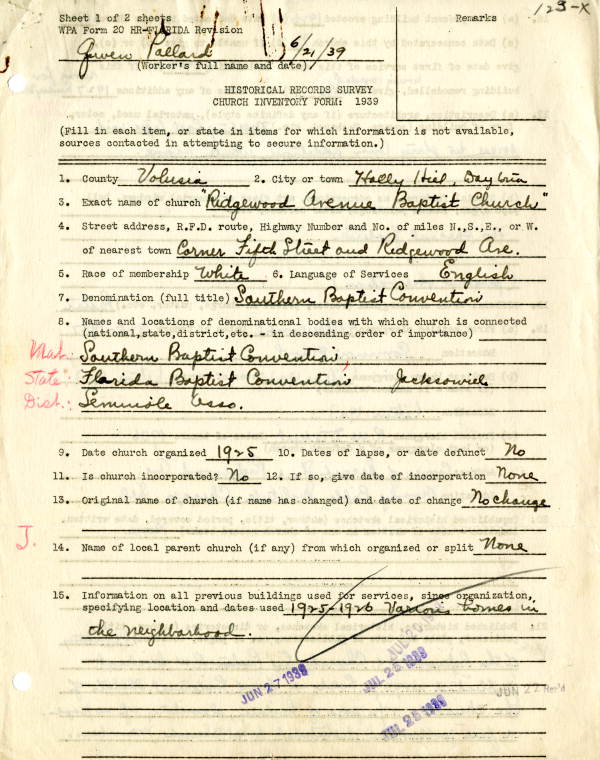 Sheet 1 of 2 sheets
WPA Form 20 HR-FLORIDA Revision
Remarks
123-X
Gwen Pollard 6/21/39
(Worker's full name and date)
HISTORICAL RECORDS SURVEY
CHURCH INVENTORY FORM: 1939
(Fill in each item, or state in items for which information is not available,
sources contacted in attempting to secure information.)
1. County Volusia 2. City or town Holly Hill, Daytona
3. Exact name of church "Ridgewood Avenue Baptist Church"
4. Street address, R.F.D. route, Highway Number and No. of miles N.,S.,E., or W.
of nearest town Corner Fifth Street and Ridgewood Ave.
5. Race of membership White 6. Language of Services English
7. Denomination (full title) Southern Baptist Convention
8. Names and locations of denominational bodies with which church is connected
(national,state,district,etc. - in descending order of importance)
Nat. Southern Baptist Convention,
State: Florida Baptist Convention Jacksonville
Dist.: Seminole Asso.
9. Date church organized 1925 10. Dates of lapse, or date defunct No
11. Is church incorporated? No 12. If so, give date of incorporation None
13. Original name of church (if name has changed) and date of change No change
J.
14. Name of local parent church (if any) from which organized or split None
15. Information on all previous buildings used for services, since organization,
specifying location and dates used 1925-1926 Various homes in
the neighborhood.
JUL 20 1939
JUN 27 1939
JUL 25 1939
JUN 22 Rec'd
JUL 25 1939